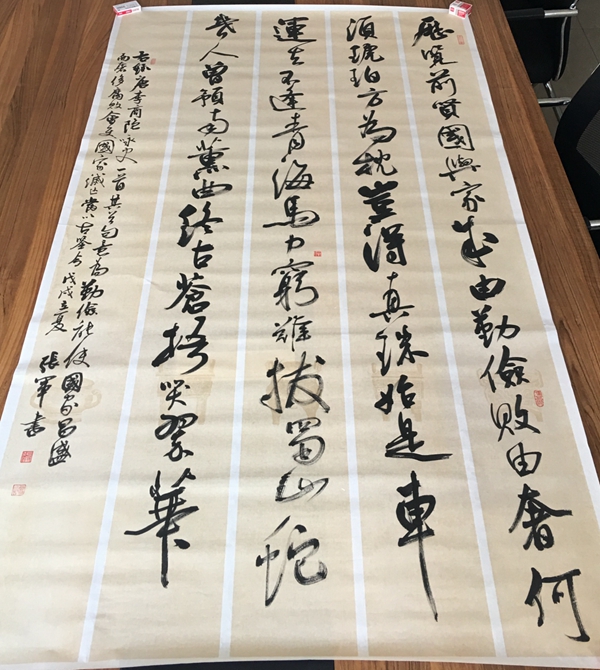 歷覽前賢國與家成由勤儉敗由奢何
須琥珀方為枕豈得真珠始是車
運去不逢青海馬力窮難拔蜀山蛇
幾人曾預南薰曲終古蒼梧哭翠華
右錄唐李商隱詠史一首其首句意為勤儉能使國家昌盛
而奢侈腐敗會使國家滅亡當以古鑒今戊戌立夏張軍書